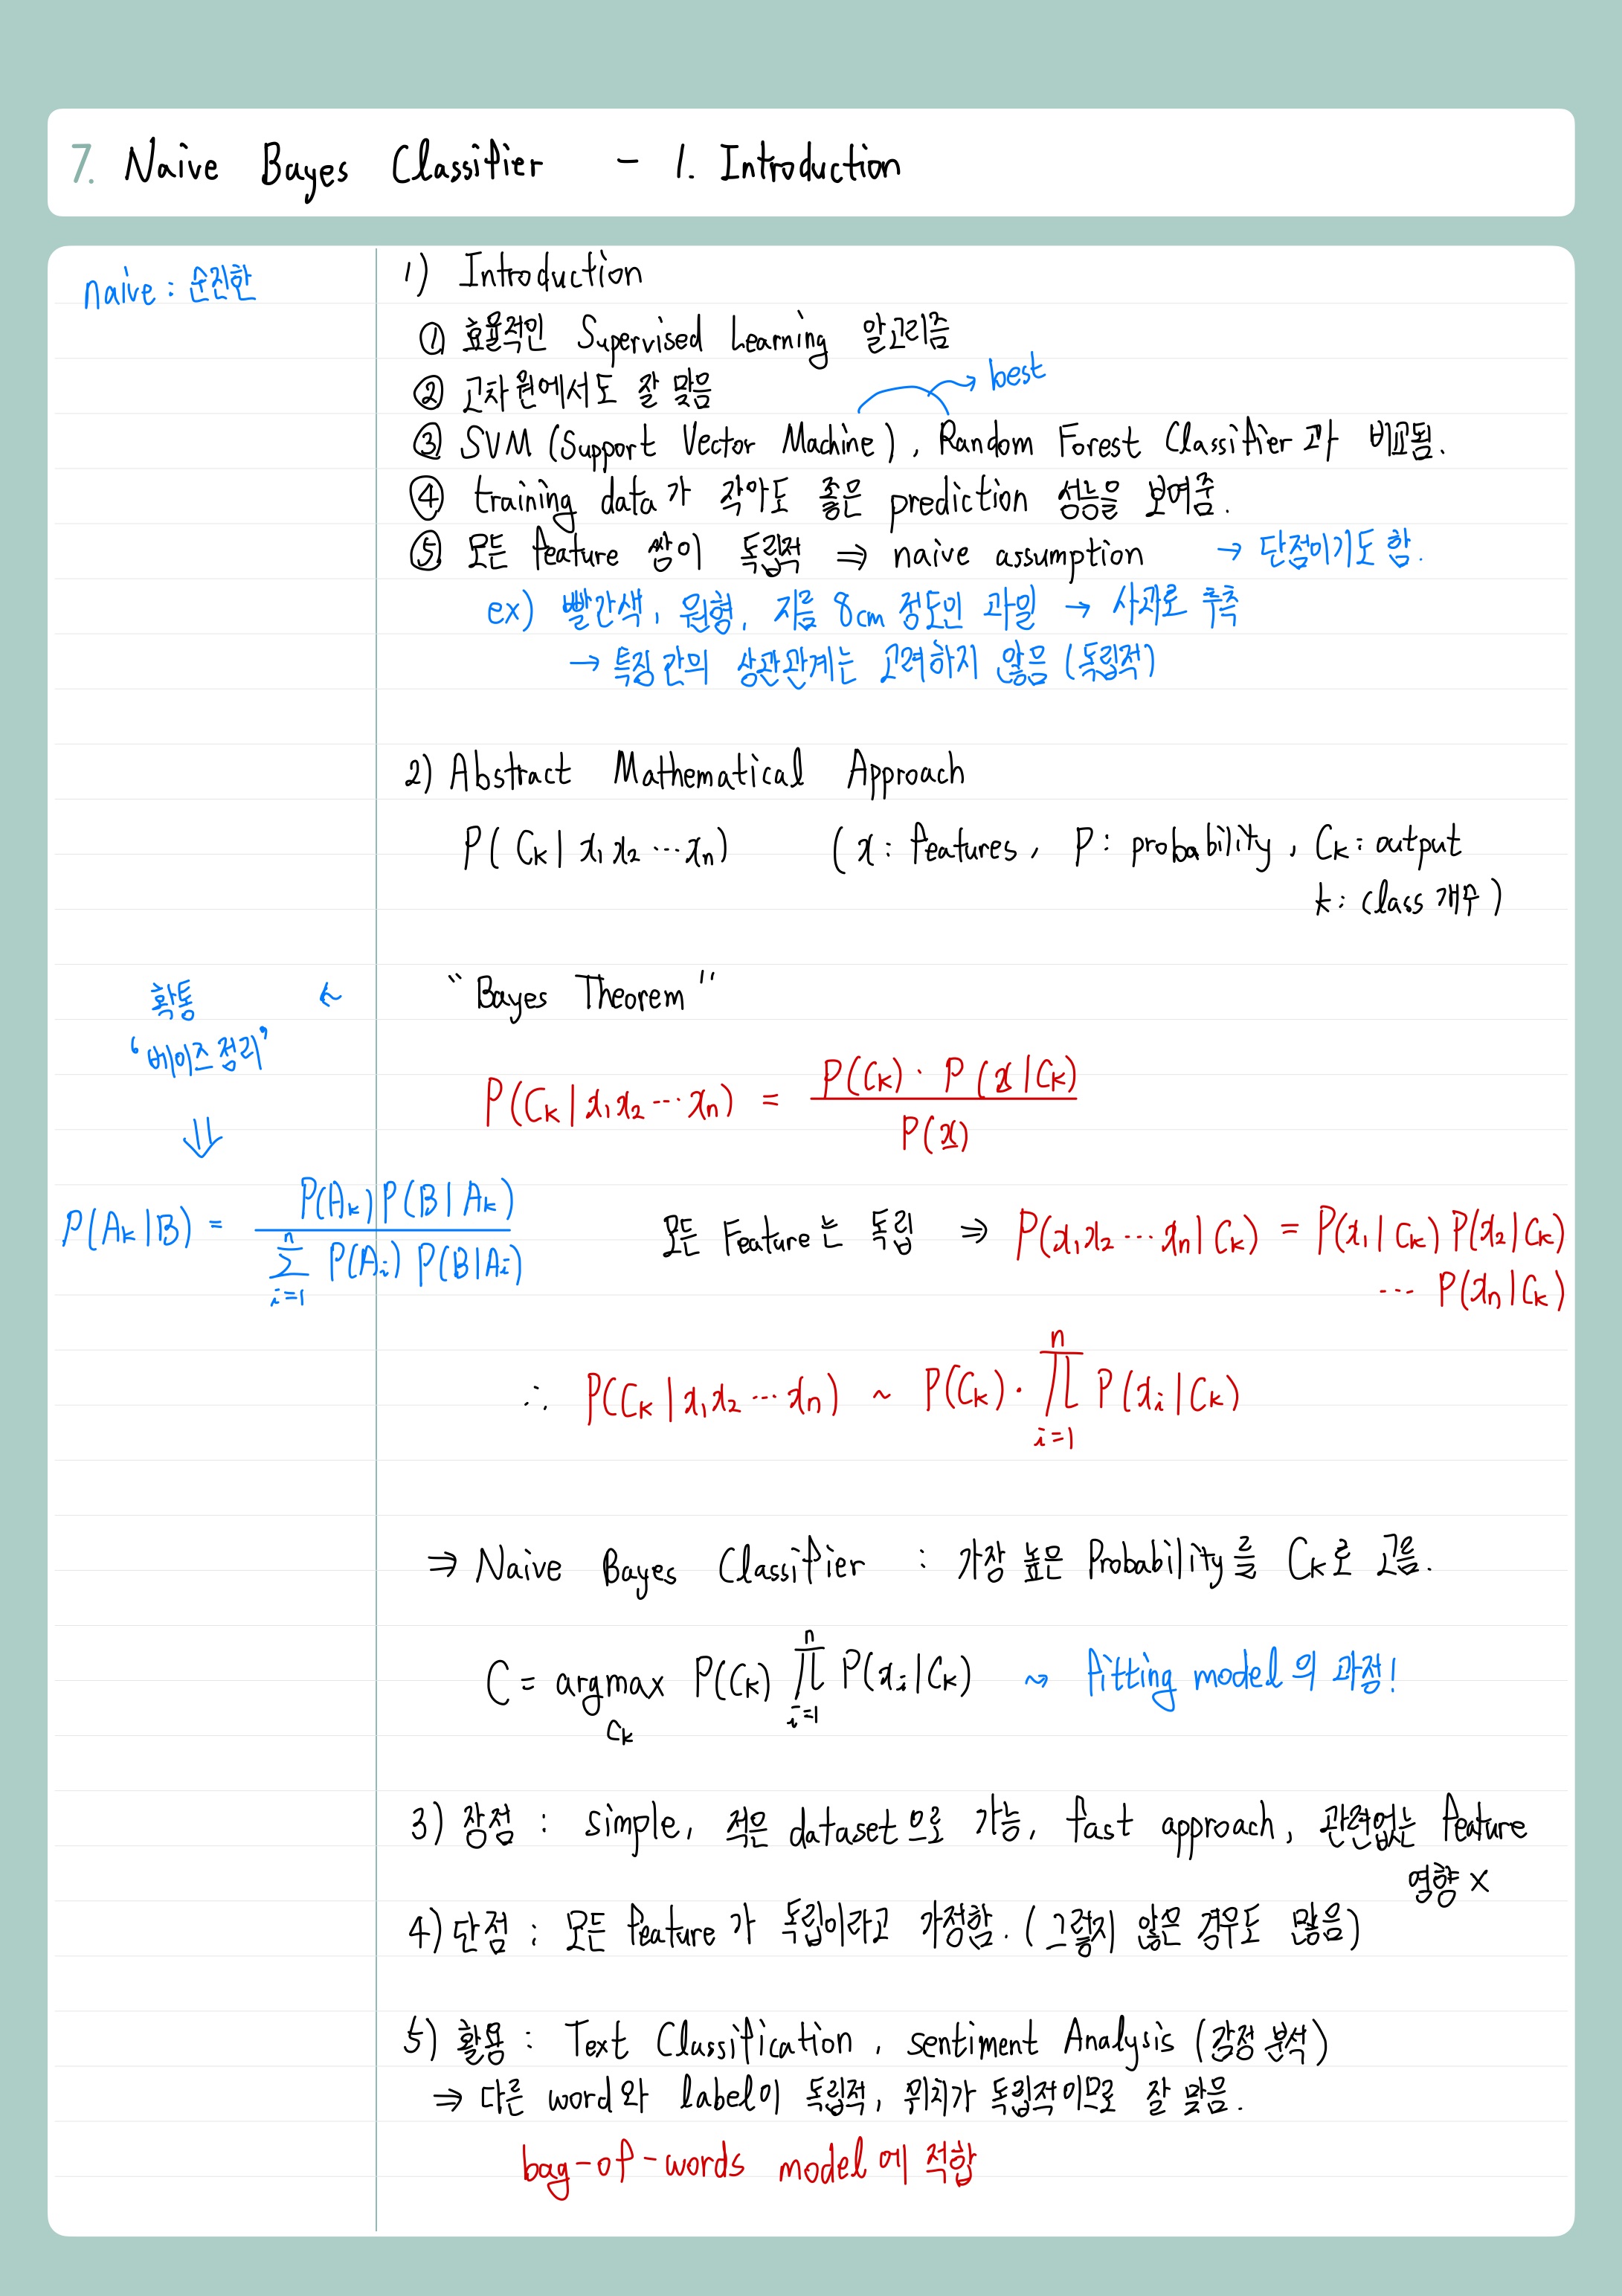 7. Naive Bayes Classifier - 1. Introduction
naive : 순진한
1) Introduction
① 효율적인 Supervised Learning 알고리즘
② 고차원에서도 잘 맞음
→ best
③ SVM (Support Vector Machine), Random Forest Classifier과 비교됨.
④ training data가 작아도 좋은 prediction 성능을 보여줌.
⑤ 모든 feature 쌍이 독립적 ⇒ naive assumption → 단점이기도 함.
ex) 빨간색, 원형, 지름 8cm 정도인 과일 → 사과로 추측
→ 특징 간의 상관관계는 고려하지 않음 (독립적)
2) Abstract Mathematical Approach
P( Ck | x1 x2 ⋯ xn) (x : features, P : probability, Ck : output
k : class 개수)
"Bayes Theorem"
확통 ←
'베이즈 정리'
⇓
P(Ck | x1 x2 ⋯ xn) = P(Ck) · P(x | Ck) / P(x)
P(Ak | B) = P(Ak) P(B | Ak) / ∑_{i=1}^{n} P(Ai) P(B | Ai)
모든 Feature는 독립 ⇒ P(x1 x2 ⋯ xn | Ck) = P(x1 | Ck) P(x2 | Ck)
⋯ P(xn | Ck)
∴ P(Ck | x1 x2 ⋯ xn) ~ P(Ck) · ∏_{i=1}^{n} P(xi | Ck)
⇒ Naive Bayes Classifier : 가장 높은 Probability를 Ck로 고름.
C = argmax_{Ck} P(Ck) ∏_{i=1}^{n} P(xi | Ck) ⇝ fitting model의 과정!
3) 장점 : simple, 적은 dataset으로 가능, fast approach, 관련없는 feature
영향 x
4) 단점 : 모든 feature가 독립이라고 가정함. (그렇지 않은 경우도 많음)
5) 활용 : Text Classification, sentiment Analysis (감정 분석)
⇒ 다른 word와 label이 독립적, 위치가 독립적이므로 잘 맞음.
bag-of-words model에 적합